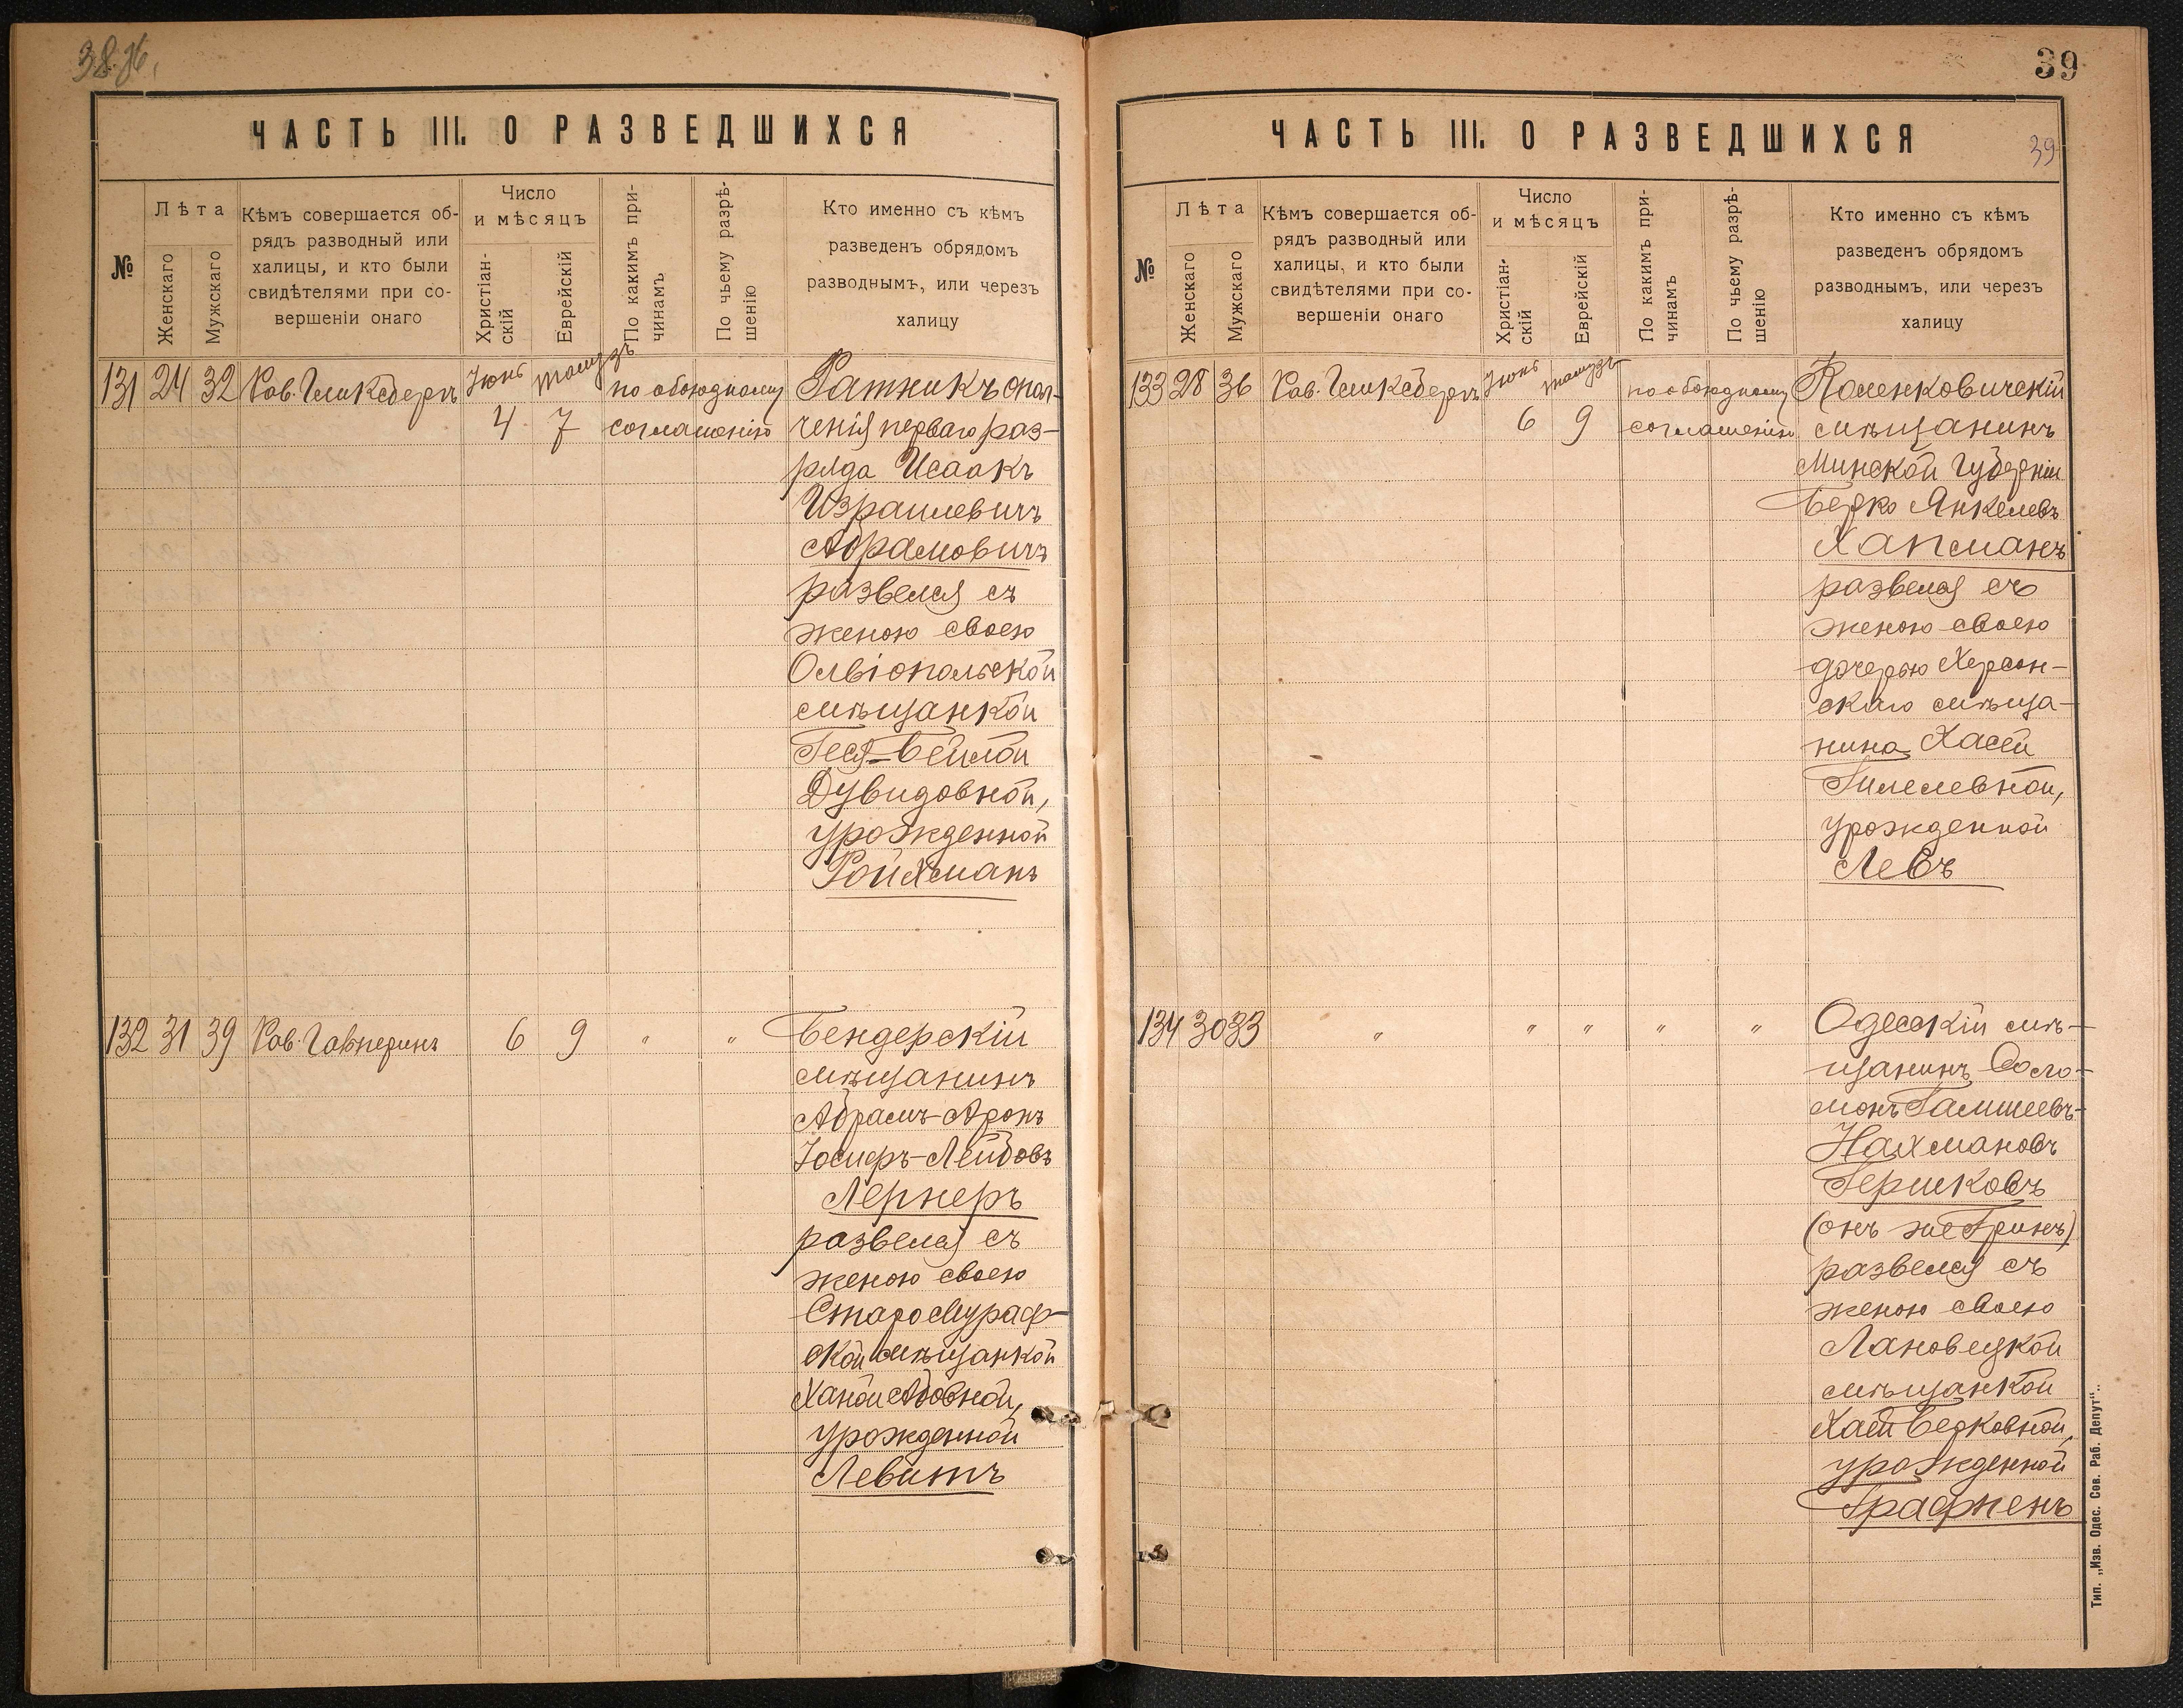 39
ЧАСТЬ III. О РАЗВЕДШИХСЯ
№
Лѣта
Женскаго
Мужскаго
Кѣмъ совершается об-
рядъ разводный или
халицы, и кто были
свидѣтелями при со-
вершеніи онаго
Число
и мѣсяцъ
Христіан-
скій
Еврейскій
По какимъ при-
чинамъ
По чьему разрѣ-
шенію
Кто именно съ кѣмъ
разведенъ обрядомъ
разводнымъ, или черезъ
халицу
131 24 32 Рав. Гликсбергъ Іюнь тамузъ по обоюдному Ратникъ опол-
4 7 соглашенію ченія перваго раз-
ряда Исаакъ
Израилевичъ
Абрамовичъ
развелся съ
женою своею
Олвіопольской
мѣщанкой
Геся-Бейлой
Дувидовной,
урожденной
Ройхманъ
132 31 39 Рав. Гальперинъ 6 9 " " Бендерскій
мѣщанинъ
Абрамъ-Аронъ
Іосифъ-Лейбовъ
Лернеръ
развелся съ
женою своею
Старо Мураф-
ской мѣщанкой
Ханой Абовной,
урожденной
Левитъ
ЧАСТЬ III. О РАЗВЕДШИХСЯ
39
№
Лѣта
Женскаго
Мужскаго
Кѣмъ совершается об-
рядъ разводный или
халицы, и кто были
свидѣтелями при со-
вершеніи онаго
Число
и мѣсяцъ
Христіан-
скій
Еврейскій
По какимъ при-
чинамъ
По чьему разрѣ-
шенію
Кто именно съ кѣмъ
разведенъ обрядомъ
разводнымъ, или черезъ
халицу
133 28 36 Рав. Гликсбергъ Іюнь тамузъ по обоюдному Коленковичскій
6 9 соглашенію мѣщанинъ
Минской Губерніи
Берко Янкелевъ
Хапманъ
развелся съ
женою своею
дочерью Херсон-
скаго мѣща-
нина Хасей
Гилелевной,
урожденной
Левъ
134 30 33 " " " " " Одесскій мѣ-
щанинъ Соло-
монъ Гамшеевъ-
Нахмановъ
Гершковъ
(онъ же Гринъ)
развелся съ
женою своею
Лановецкой
мѣщанкой
Хаей Берковной,
урожденной
Графменъ
Тип. „Изв. Одес. Сов. Раб. Депут".